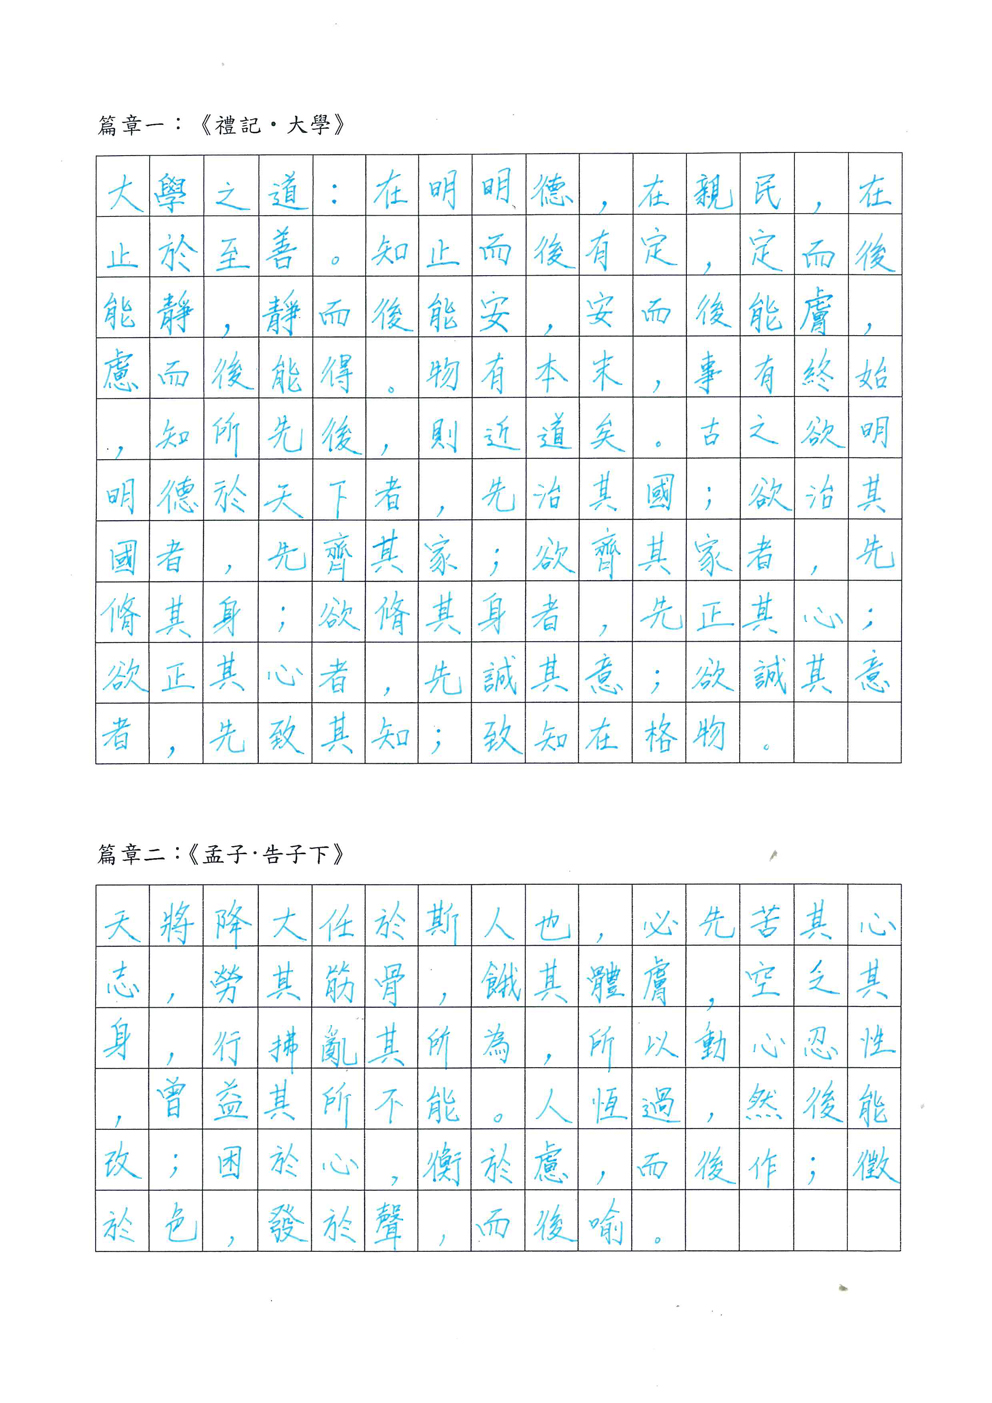 篇章一：《禮記·大學》
大學之道：在明明德，在親民，在
止於至善。知止而後有定，定而後
能靜，靜而後能安，安而後能膚，
慮而後能得。物有本末，事有終始
，知所先後，則近道矣。古之欲明
明德於天下者，先治其國；欲治其
國者，先齊其家；欲齊其家者，先
脩其身；欲脩其身者，先正其心；
欲正其心者，先誠其意；欲誠其意
者，先致其知；致知在格物。
篇章二：《孟子·告子下》
天將降大任於斯人也，必先苦其心
志，勞其筋骨，餓其體膚，空乏其
身，行拂亂其所為，所以動心忍性
，曾益其所不能。人恆過，然後能
改；困於心，衡於慮，而後作；徵
於色，發於聲，而後喻。